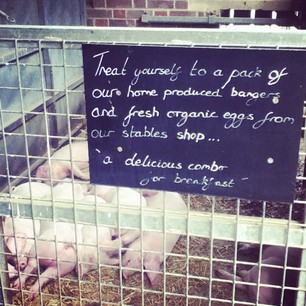 Treat yourself to a pack of
our home produced bangers
and fresh organic eggs from
our stables shop...
'a delicious combo
for breakfast'